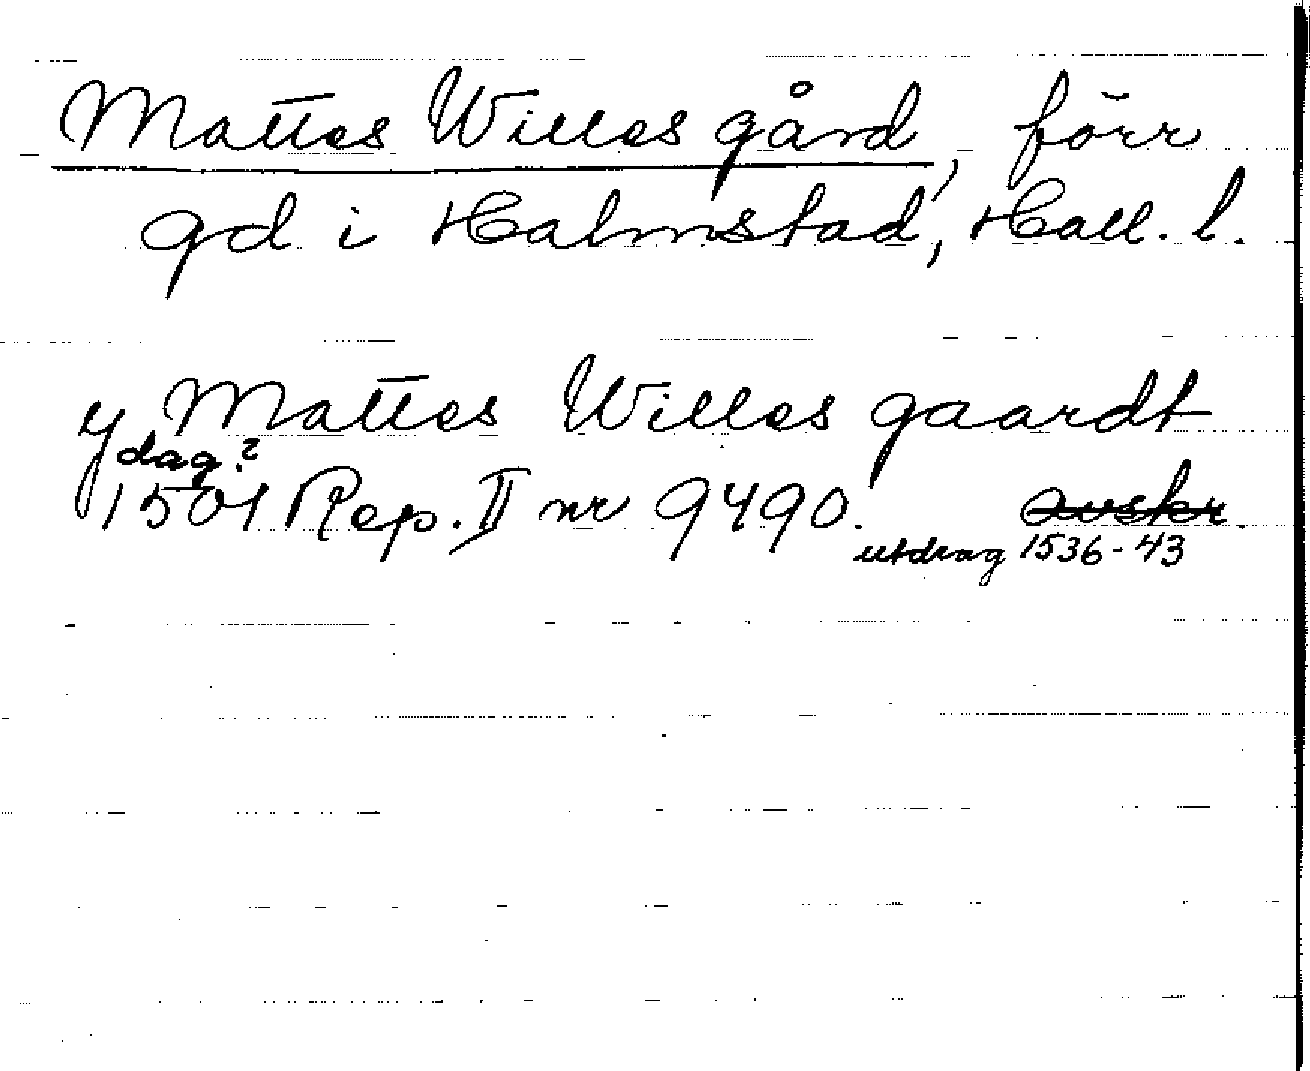 Mattes Willes gård, förr
gd i Halmstad, Hall. l.
y Mattes Willes gaardt
dag?
1501 Rep. II nr 9490. avskr.
utdrag 1536-43